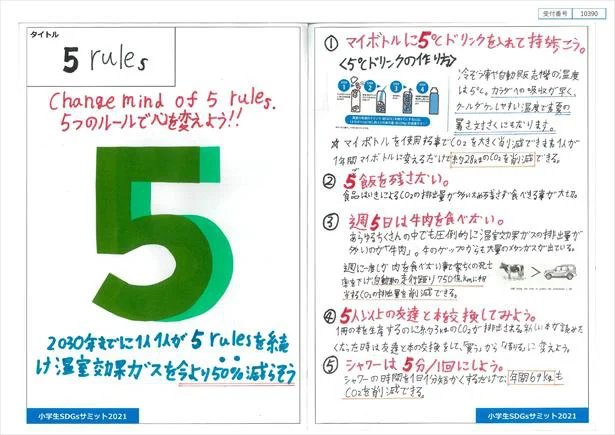 受付番号 10390
タイトル
5 rules
Change mind of 5 rules.
5つのルールで心を変えよう!!
5
2030年までに1人1人が5 rulesを続
け温室効果ガスを今より50%減らそう
小学生SDGsサミット2021
① マイボトルに5℃ドリンクを入れて持ち歩こう。
<5℃ドリンクの作り方>
冷ぞう庫や自動販売機の温度
は5℃。カラダへの吸収が早く、
クールダウンしやすい温度で真夏の
暑さ対さくにもなります。
☆マイボトルを使用する事でCO2を大きく削減できます。1人が
1年間マイボトルに変えるだけで約28kgのCO2を削減できる。
② 5飯を残さない。
③ 週5日は牛肉を食べない。
あらゆるたくさんの中でも圧倒的に温室効果ガスの排出量が
多いのが「牛肉」。牛のゲップからも大量のメタンガスが出ている。
CO2の排出量を削減できる。
④ 5人以上の友達と本を交換してみよう。
1冊の本を生産するのに約3kgのCO2が排出される。新しい本が読みた
くなった時は友達と本の交換をして、「買う」から「借りる」に変えよう。
⑤ シャワーは5分/1回にしよう。
シャワーの時間を1日1分短かくするだけで、年間69kgも
CO2を削減できる。
小学生SDGsサミット2021